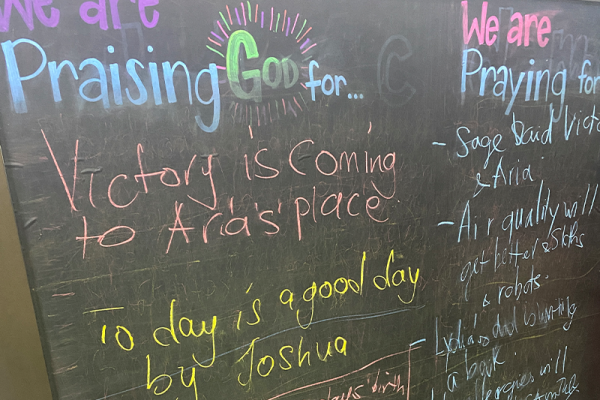 We are
Praising God for...
Victory is Coming
to Aria's place.
Today is a good day
by Joshua
We are
Praying for
- Sage David Victo
& Aria.
- Air quality will
get better & Sloths
& robots.
- Lydia's dad burning
a book.
allergies will